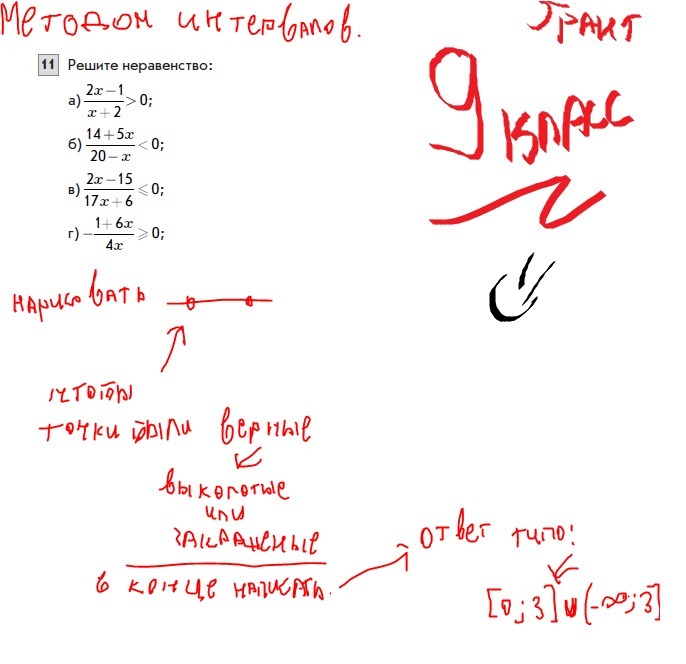 методом интервалов.
9 класс
11 Решите неравенство:
а) (2x−1)/(x+2) > 0;
б) (14+5x)/(20−x) < 0;
в) (2x−15)/(17x+6) ⩽ 0;
г) −(1+6x)/(4x) ⩾ 0;
нарисовать
чтобы
точки были верные
выколотые
или
закрашенные
в конце написать
ответ типо:
[0;3]∪(-∞;3]